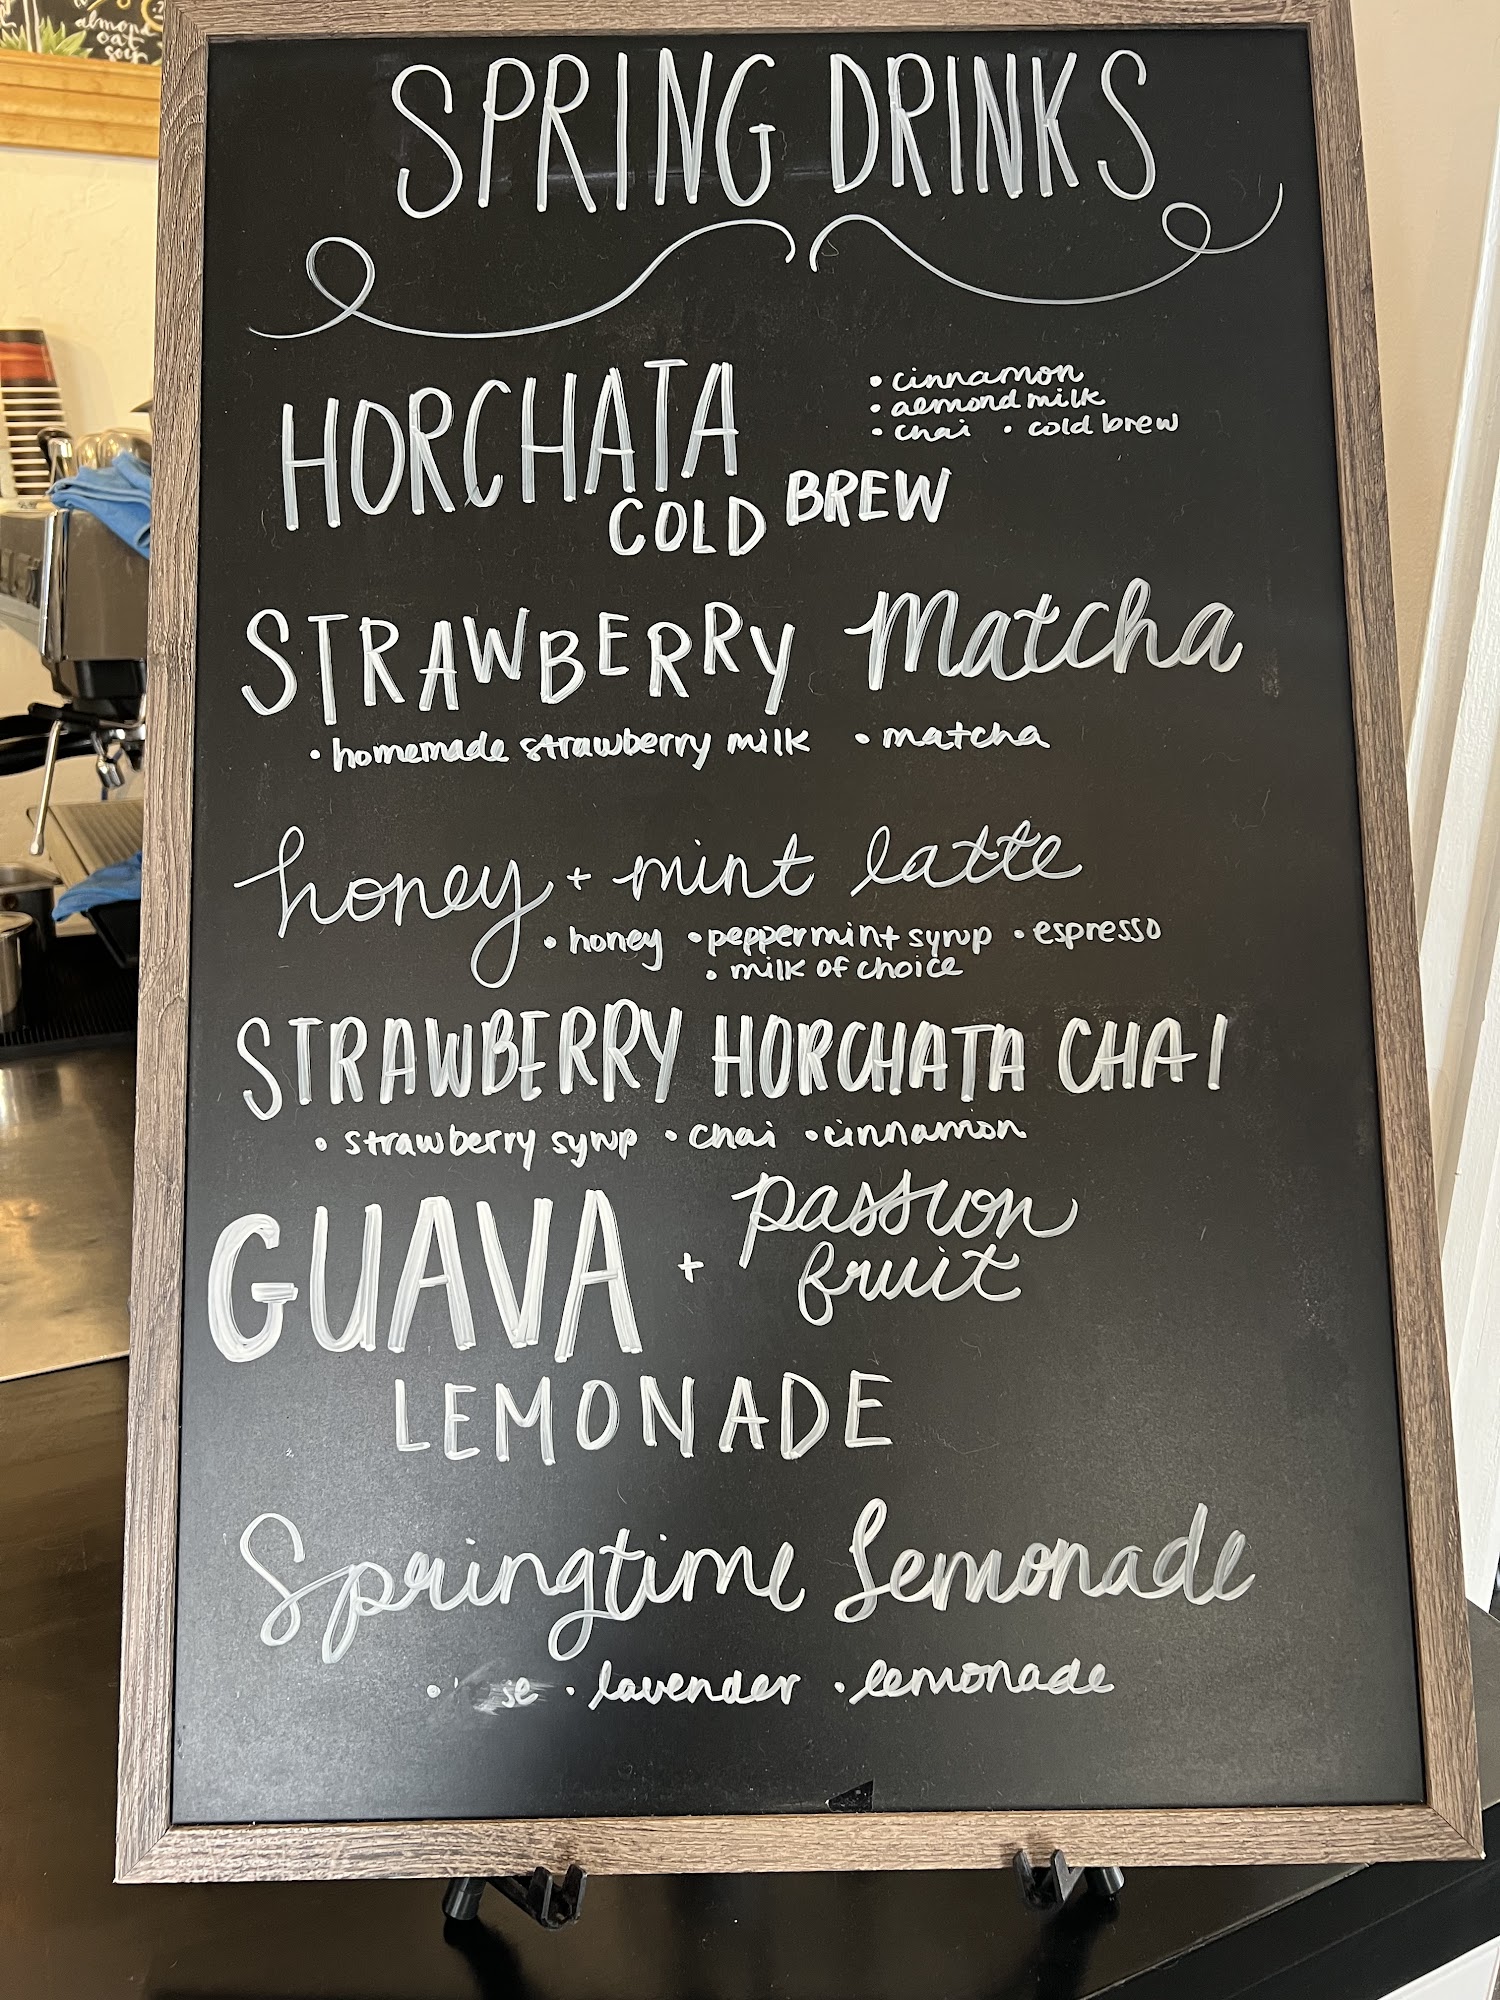 almond
oat
soy
SPRING DRINKS
HORCHATA
• cinnamon
• almond milk
• chai • cold brew
COLD BREW
STRAWBERRY Matcha
• homemade strawberry milk • matcha
honey + mint latte
• honey • peppermint syrup • espresso
• milk of choice
STRAWBERRY HORCHATA CHAI
• strawberry syrup • chai • cinnamon
GUAVA + passion
fruit
LEMONADE
Springtime Lemonade
• lavender • lemonade